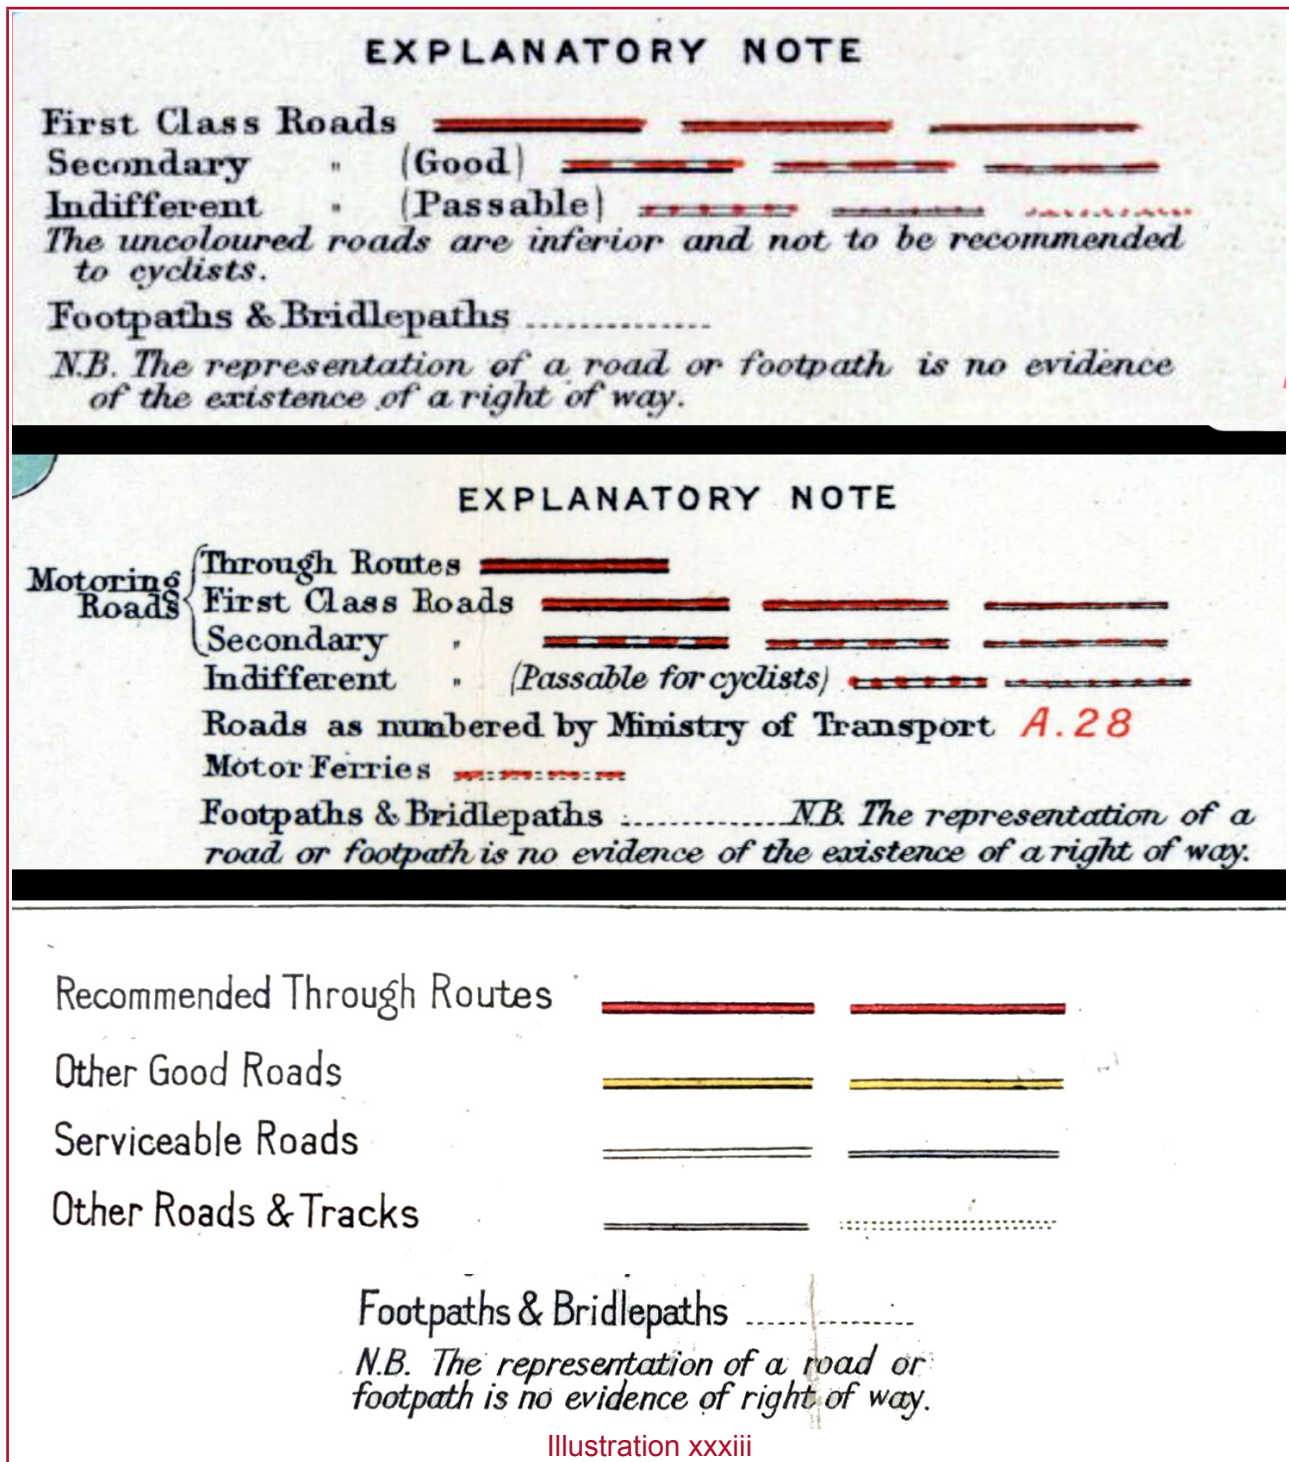 EXPLANATORY NOTE
First Class Roads
Secondary " (Good)
Indifferent " (Passable)
The uncoloured roads are inferior and not to be recommended
to cyclists.
Footpaths & Bridlepaths ..............
N.B. The representation of a road or footpath is no evidence
of the existence of a right of way.
EXPLANATORY NOTE
Motoring Roads
Through Routes
First Class Roads
Secondary "
Indifferent " (Passable for cyclists)
Roads as numbered by Ministry of Transport A.28
Motor Ferries
Footpaths & Bridlepaths ..............N.B. The representation of a
road or footpath is no evidence of the existence of a right of way.
Recommended Through Routes
Other Good Roads
Serviceable Roads
Other Roads & Tracks
Footpaths & Bridlepaths ..............
N.B. The representation of a road or
footpath is no evidence of right of way.
Illustration xxxiii